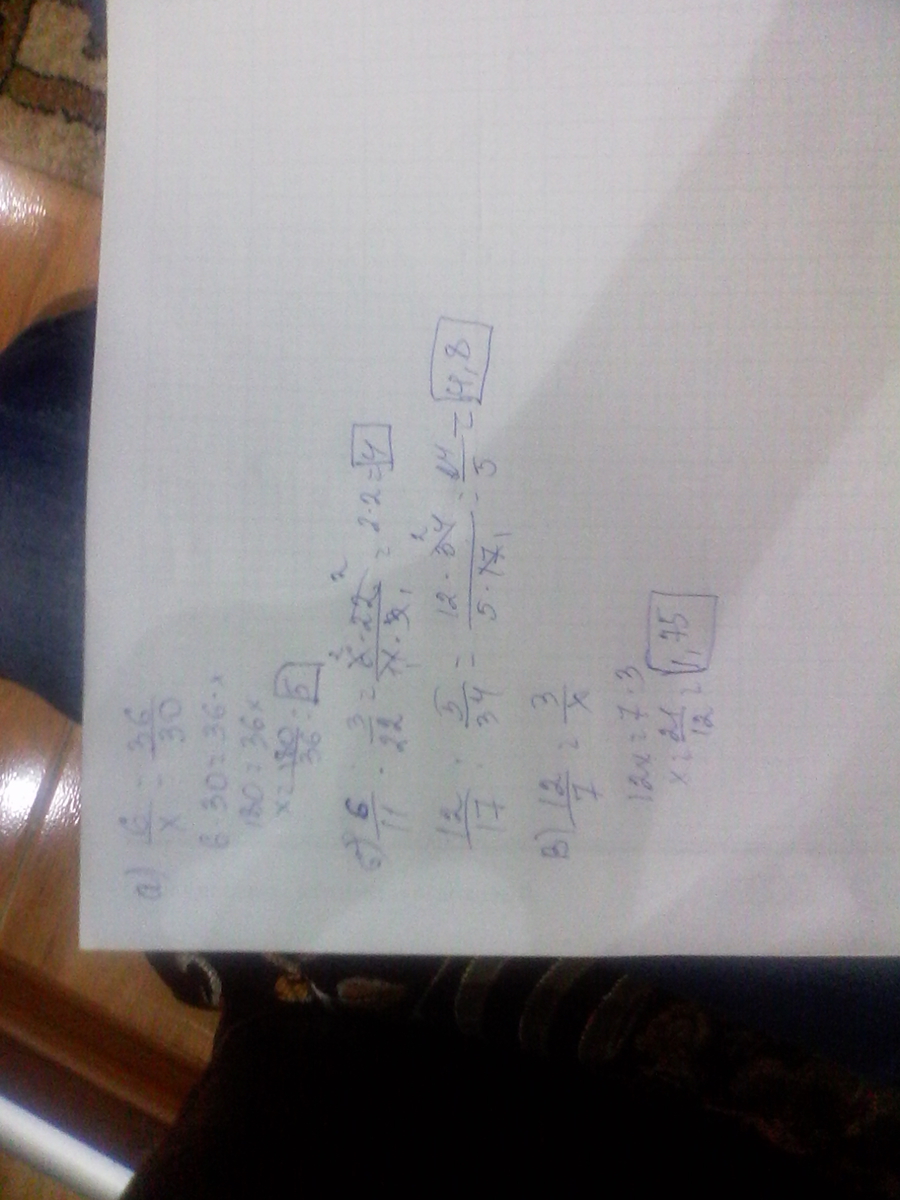 а) 6/x = 36/30
6·30=36·x
180=36x
x=180/36=5
б) 6/11 : 3/22 = 6·22/11·3 = 2·2=4
12/17 : 5/34 = 12·34/5·17 = 24/5 = 4,8
в) 12/7 = 3/x
12x=7·3
x=21/12=1,75